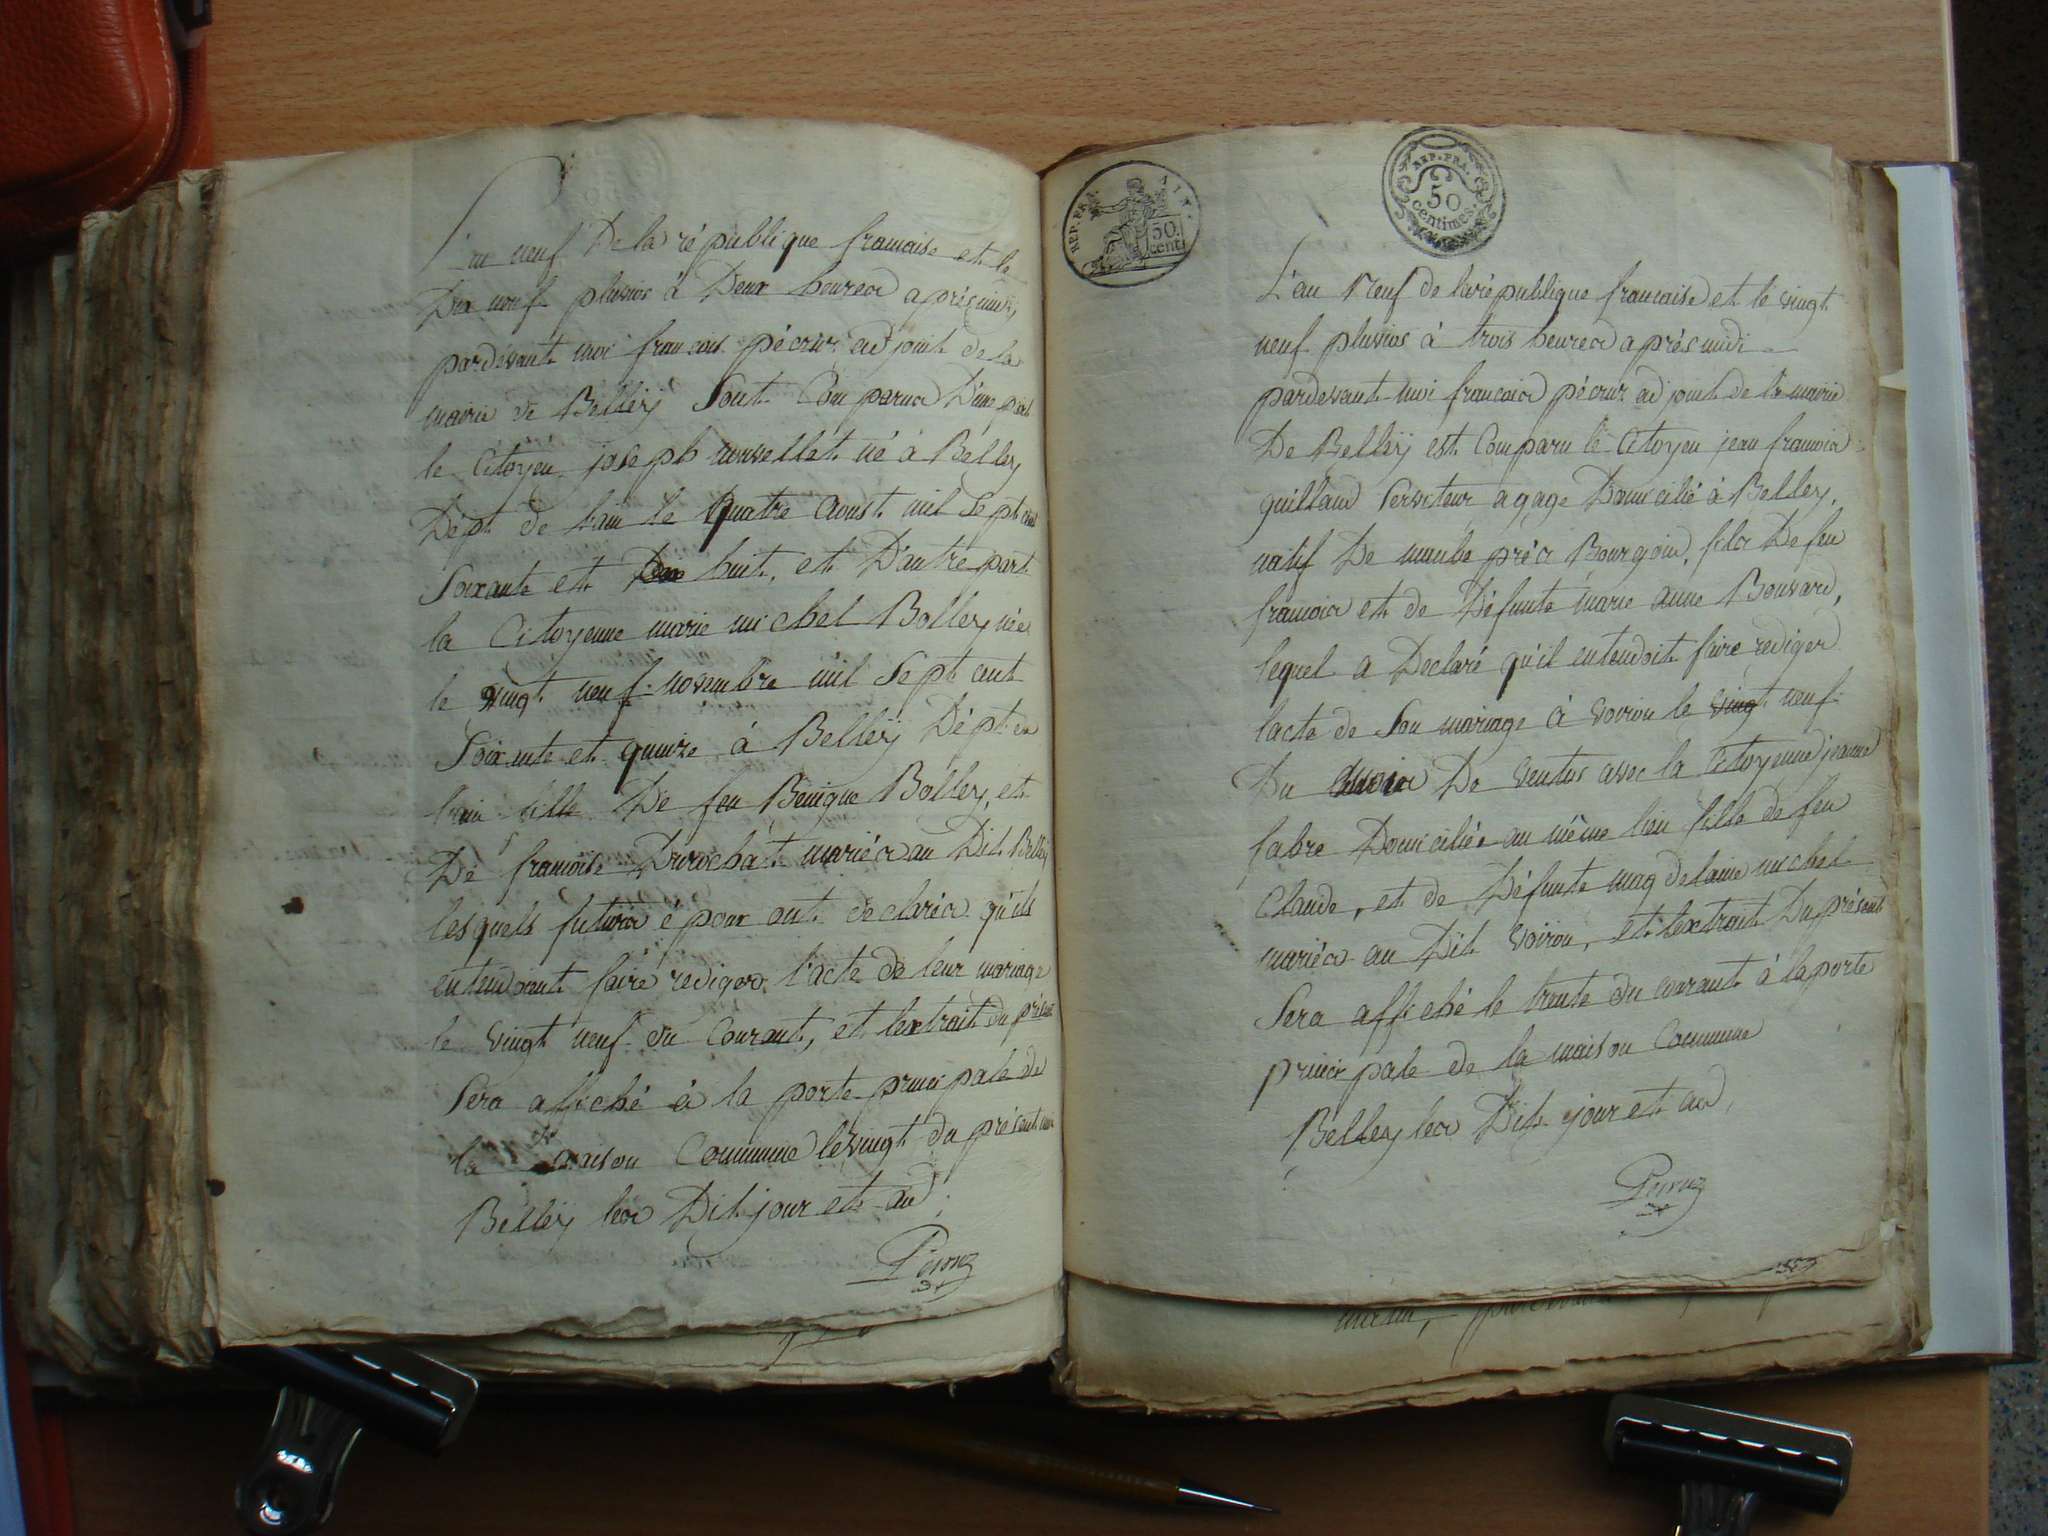 L'an neuf De la république francaise et le
Dix neuf pluvios à Deux heures après midi,
pardevant moi francois pécruz adjoint de la
mairie de Belleÿ Sont Comparus D'une part
le Citoyen joseph nouvellet né à Belley
Dépt. de lain le quatre Aoust mil Sept cent
Soixante et Dix huit, et D'autre part
la Citoyenne marie michel Bolley née
le vingt neuf novembre mil Sept cent
Soixante et quinze à Belleÿ Dépt. de
lain fille De feu Benigne Bolley, et
De francoise Durochat mariés au Dit Belleÿ
lesquels futurs époux ont declarés qu'ils
entendoient faire rediger l'acte de leur mariage
le vingt neuf du Courant, et lextrait du présent
Sera affiché à la porte principale de
la maison Commune le vingt du présent mois
Belleÿ les Dit jour et an
Pécruz
REP. FRA.
50. cent.
REP. FRA.
50
centimes.
L'an Neuf de la république francaise et le vingt
neuf pluvios à trois heures après midi
pardevant moi francois pécruz adjoint de la mairie
De Belleÿ est Comparu le Citoyen jean francois
guillaud Serviteur a gage Domicilié à Belley,
natif De maubé près Bourgoin, fils De feu
francois et de Défunte marie anne Bouvard,
lequel a Declaré qu'il entendoit faire rediger
lacte de Son mariage à voiron le vingt neuf
Du mois De ventos avec la Citoyenne jeanne
fabre Domiciliée au même lieu fille de feu
Claude, et de Défunte magdelaine michel
mariés au Dit voiron, et lextrait Du présent
Sera affiché le trente du courant à la porte
principale de la maison Commune
Belley les Dit jour et an,
Pécruz